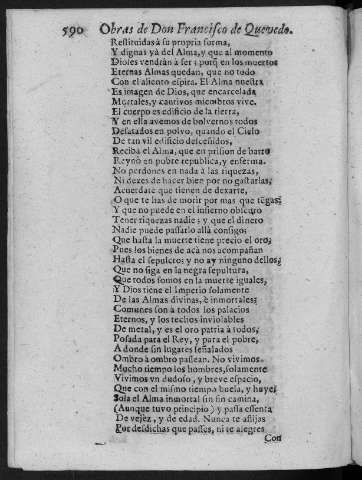 590 Obras de Don Francisco de Quevedo.
Restituidas à su propria forma,
Y dignas yà del Alma, y que al momento
Dioses vendràn à ser; porq̃ en los muertos
Eternas Almas quedan, que no todo
Con el aliento espira. El Alma nuestra
Es imagen de Dios, que encarcelada
Mortales, y cautivos miembros vive.
El cuerpo es edificio de la tierra,
Y en ella avemos de bolvernos todos
Desatados en polvo, quando el Cielo
De tan vil edificio desceñidos,
Reciba el Alma, que en prision de barro
Reynò en pobre republica, y enferma.
No perdones en nada à las riquezas,
Ni dexes de hacer bien por no gastarlas,
Acuerdate que tienen de dexarte,
O que te has de morir por mas que tẽgas;
Y que no puede en el infierno obscuro
Tener riquezas nadie; y que el dinero
Nadie puede passarlo allà consigo;
Que hasta la muerte tiene precio el oro;
Pues los bienes de acà nos acompañan
Hasta el sepulcro; y no ay ninguno dellos,
Que no siga en la negra sepultura,
Que todos somos en la muerte iguales,
Y Dios tiene el Imperio solamente
De las Almas divinas, è inmortales;
Comunes son à todos los palacios
Eternos, y los techos inviolables
De metal, y es el oro patria à todos,
Posada para el Rey, y para el pobre,
A donde sin lugares señalados
Ombro à ombro passean. No vivimos
Mucho tiempo los hombres, solamente
Vivimos vn dudoso, y breve espacio,
Que con el mismo tiempo buela, y huye;
Sola el Alma inmortal sin fin camina,
(Aunque tuvo principio) y passa essenta
De vejèz, y de edad. Nunca te aflijas
Por desdichas que passes, ni te alegres
Con